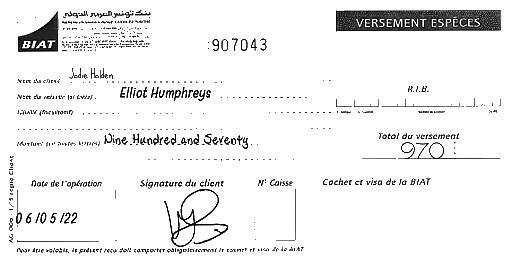 بنك تونس العربي الدولي
BIAT
VERSEMENT ESPÈCES
907043
Nom du client Jodie Holden
Nom du verseur (si tiers) Elliot Humphreys
R.I.B.
Libellé (facultatif)
Montant (en toutes lettres) Nine Hundred and Seventy
Total du versement
970
Date de l'opération
Signature du client
N° Caisse
Cachet et visa de la BIAT
06/05/22
Pour être valable, le présent reçu doit comporter obligatoirement le cachet et visa de la BIAT